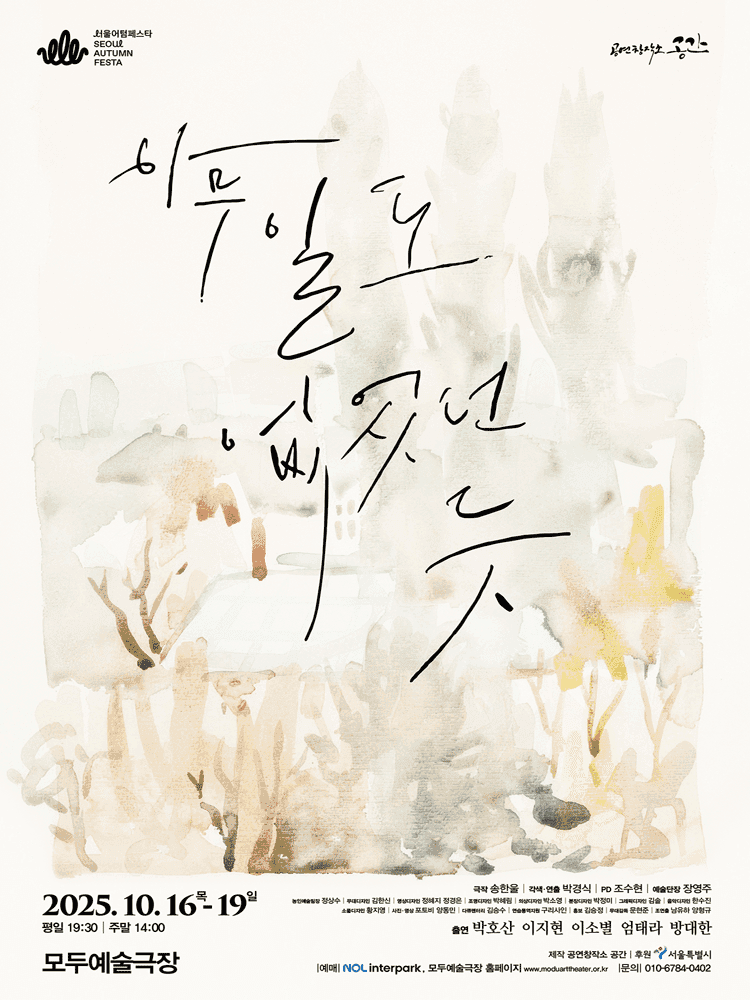 서울어텀페스타
SEOUL
AUTUMN
FESTA
공연창작소 공간
아무 일도
없었던
듯
극작 송한울 | 각색·연출 박경식 | PD 조수현 | 예술단장 장영주
농인예술팀장 정상수 | 무대디자인 김한신 | 영상디자인 정혜지 정경은 | 조명디자인 박혜림 | 의상디자인 박소영 | 분장디자인 박정미 | 그래픽디자인 김솔 | 음악디자인 한수진
소품디자인 황지영 | 사진·영상 포토비 양동민 | 다큐멘터리 김승수 | 연습통역지원 구리사인 | 홍보 김승정 | 무대감독 문현준 | 조연출 남유하 양형규
2025. 10. 16목 - 19일
평일 19:30 | 주말 14:00
출연 박호산 이지현 이소별 엄태라 방대한
모두예술극장
제작 공연창작소 공간 | 후원 서울특별시
|예매| NOL interpark, 모두예술극장 홈페이지 www.moduarttheater.or.kr |문의| 010-6784-0402